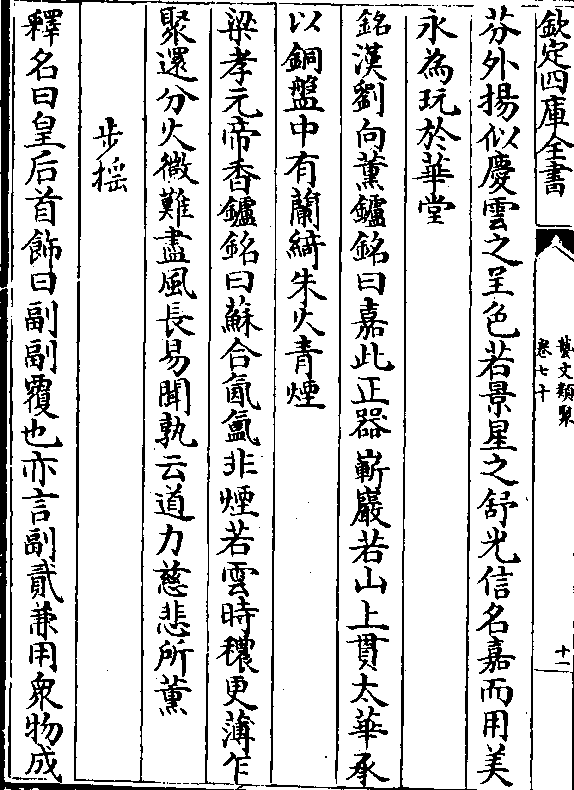 欽定四庫全書
藝文類聚
卷七十
十一
芬外揚似慶雲之呈色若景星之舒光信名嘉而用美
永為玩於華堂
銘漢劉向薰鑪銘曰嘉此正器嶄巖若山上貫太華承
以銅盤中有蘭綺朱火青煙
梁孝元帝香鑪銘曰蘇合氤氲非煙若雲時穠更薄乍
聚還分火微難盡風長易聞孰云道力慈悲所薰
步摇
釋名曰皇后首飾曰副副覆也亦言副貳兼用衆物成